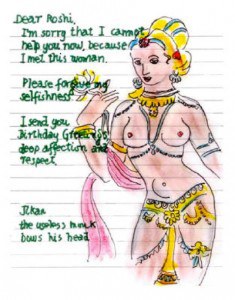 Dear Roshi,
I'm sorry that I cannot
help you now, because
I met this woman.
Please forgive my
selfishness.
I send you
Birthday Greetings
deep affection and
respect.
Jikan
the useless monk
bows his head.